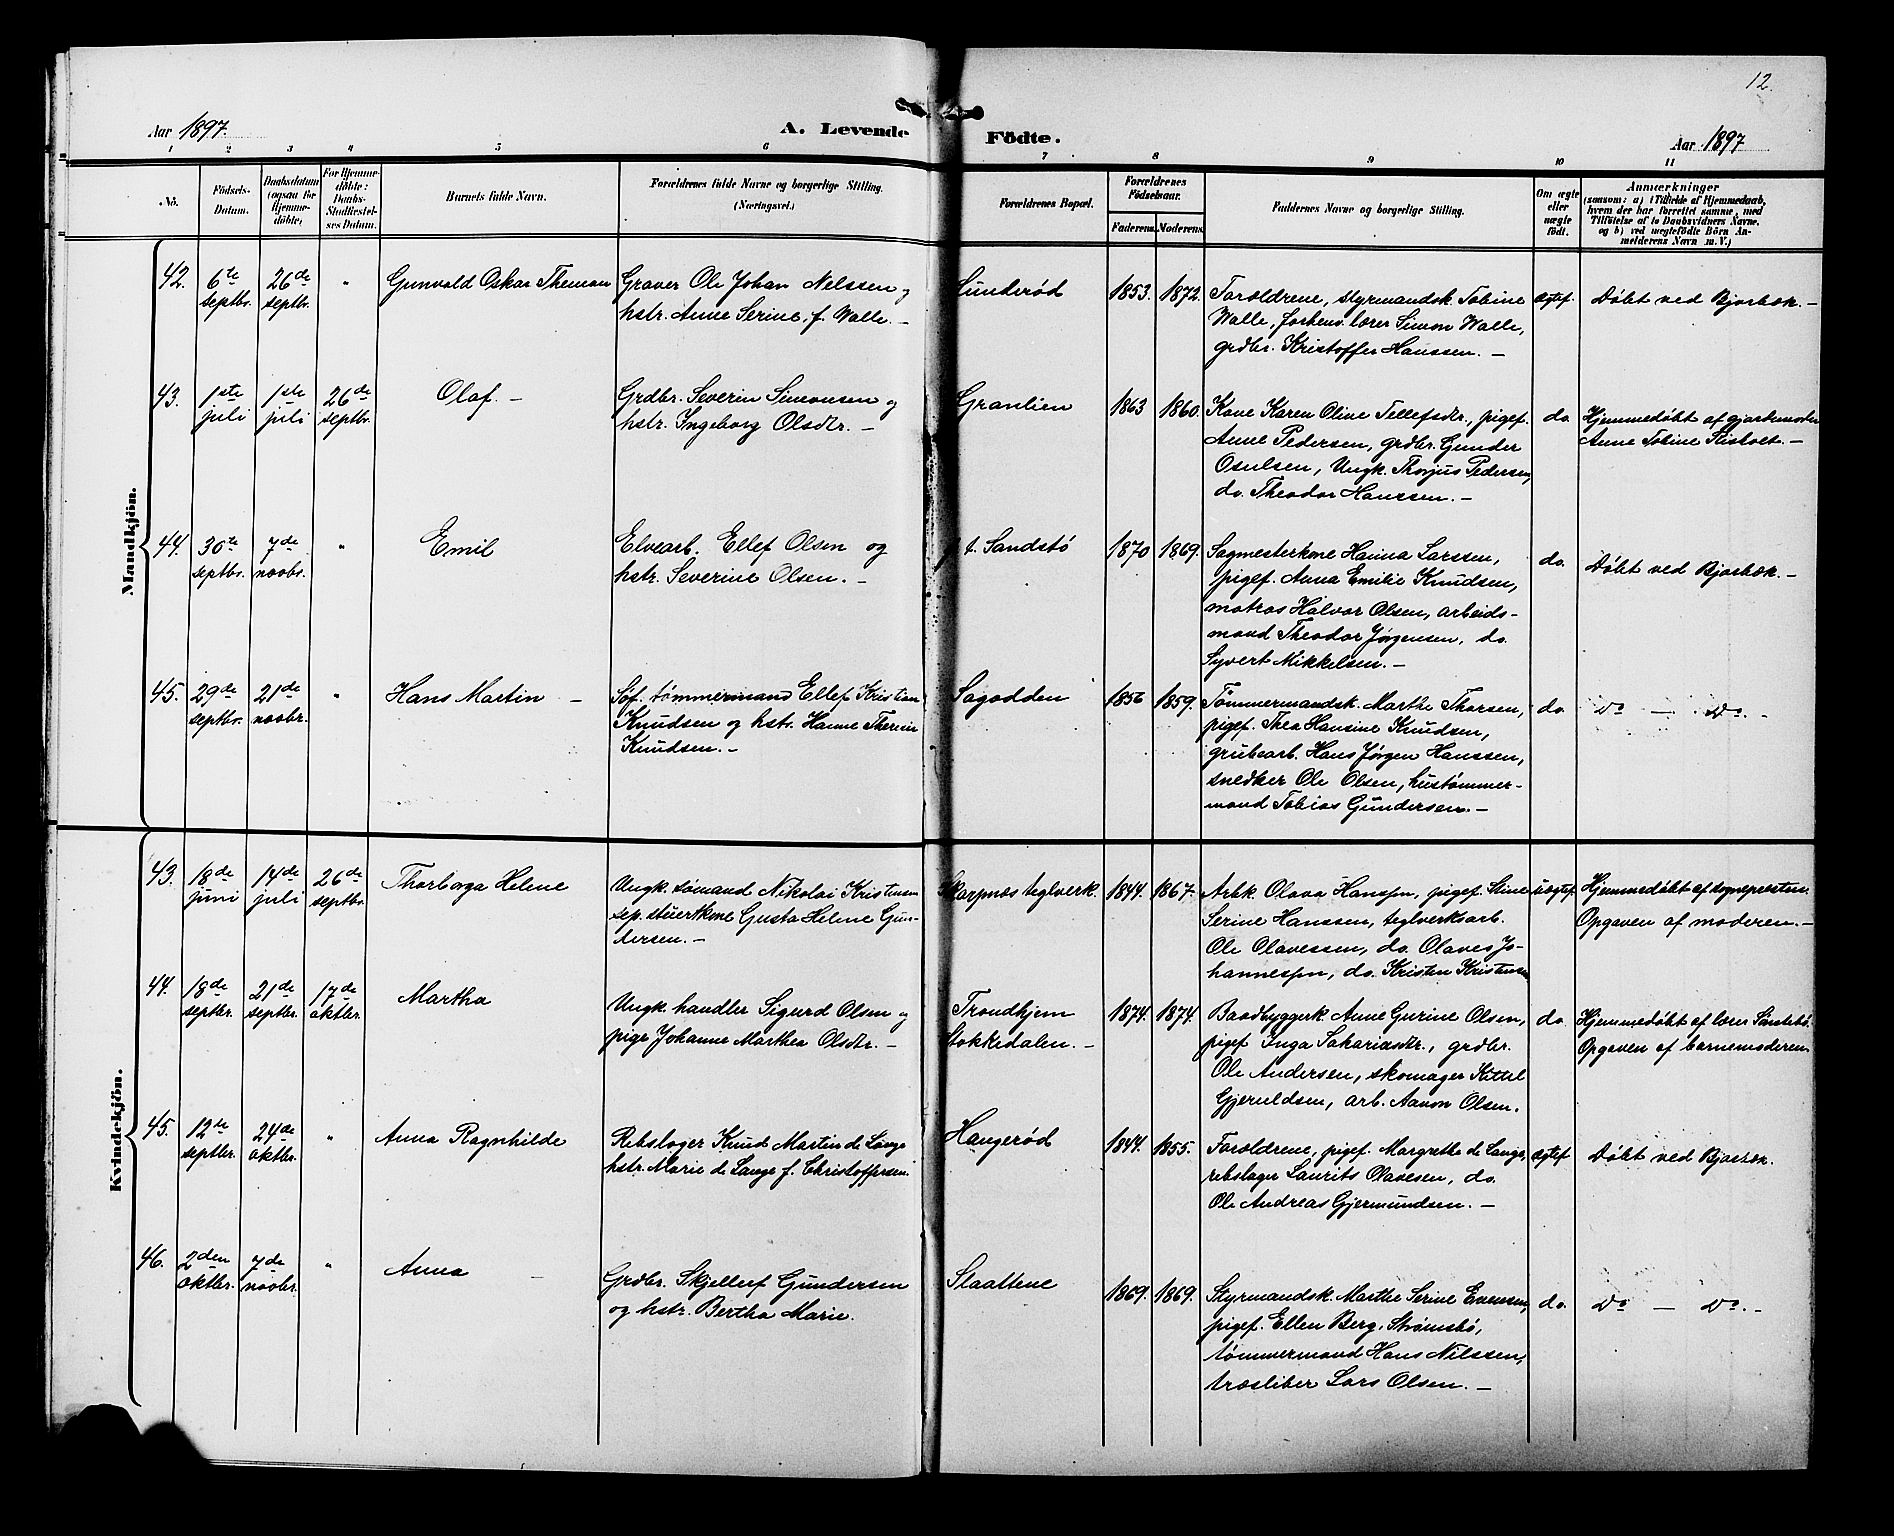 12.
Aar 1897.
A. Levende
Födte.
Aar 1897
1 2 3 4 5 6 7 8 9 10 11
No.
Födsels-
Datum.
Daabsdatum
(ogsaa for
Hjemme-
döbte)
For Hjemme-
döbte:
Daabs-
Stadfæstel-
ses Datum.
Barnets fulde Navn.
Forældrenes fulde Navne og borgerlige Stilling.
(Næringsvei.)
Forældrenes Bopæl.
Forældrenes
Födselsaar.
Faderens. Moderens.
Faddernes Navne og borgerlige Stilling.
Om ægte
eller
uægte
födt.
Anmærkninger
(saasom: a) i Tilfælde af Hjemmedaab,
hvem der har forrettet samme, med
Tilföielse af to Daabsvidners Navne,
og b) ved uegtefödte Börn An-
melderens Navn m. V.)
Mandkjön.
42.
6te
septbr.
26de
septbr.
"
Gunvald Oskar Theman
Graver Ole Johan Nelssen og
hstr. Anne Serine, f. Walle. —
Sunderød
1853. 1872.
Forældrene, styrmandsk. Tobine
Walle, forhenv. lærer Simon Walle,
grdbr. Kristoffer Hanssen. —
ægtef.
Døbt ved Bjorbæk. —
43.
1ste
juli
1ste
juli
26de
septbr.
Olaf. —
Grdbr. Severin Simonsen og
hstr. Ingeborg Olsdtr. —
Granlien
1863 1860.
Kone Karen Olive Tellefsdtr., pigef.
Anne Pedersen, grdbr. Gunder
Osulsen, Ungk. Thorjus Pedersen,
do. Theodor Hanssen. —
do.
Hjemmedøbt af gjordemoder
Anne Tobine
44.
30te
septbr.
7de
novbr.
"
Emil
Elvearb. Ellef Olsen og
hstr. Severine Olsen. —
p. t. Sandstø
1870 1869.
Sagmesterkone Hanna Larssen,
pigef. Anna Emilie Knudsen,
matros Halvor Olsen, arbeids-
mand Theodor Jørgensen, do.
Syvert Mikkelsen. —
do.
Døbt ved Bjorbæk. —
45.
29de
septbr.
21de
novbr.
"
Hans Martin —
Søf. tømmermand Ellef Kristian
Knudsen og hstr. Hanne Therese
Knudsen. —
Sagodden
1856 1859.
Tømmermandsk. Marthe Thorsen,
pigef. Thea Hansine Knudsen,
grubearb. Hans Jørgen Hanssen,
snedker Ole Olsen, hustømmer-
mand Tobias Gundersen. —
do.
Do — Do. —
Kvindekjön.
43.
18de
juni
14de
juli
26de
septbr.
Thorborga Helene
Ungk. sømand Nikolai Kristensen
sep. stuertkone Gusta Helene Gun-
dersen. —
Skarpnæs teglverk.
1844. 1867.
Arbk. Olava Hanssen, pigef. Stine
Serine Hanssen, teglverksarb.
Ole Olavessen, do. Olaves Jo-
hannessen, do. Kristen Kristensen
uægtef.
Hjemmedøbt af sognepresten.
Opgaven af moderen. —
44.
18de
septbr.
21de
septbr.
17de
oktbr.
Martha
Ungk. handler Sigurd Olsen og
pige Johanne Marthea Olsdtr. —
Trondhjem
Stokkedalen. —
1874. 1874.
Baadbyggerk. Anne Gurine Olsen,
pigef. Inga Sakariasdtr., grdbr.
Ole Andersen, skomager Kittel
Gjeruldsen, arb. Aanon Olsen.
do.
Hjemmedøbt af lærer
Opgaven af barnemoderen
45.
12te
septbr.
24de
oktbr.
"
Anna Ragnhilde
Rebslager Knud Martin de Lange
hstr. Marie de Lange f. Christoffersen.
Haugerød
1844. 1855.
Forældrene, pigef. Margrethe de Lange,
rebslager Laurits Olavesen, do.
Ole Andreas Gjermundsen. —
ægtef.
Døbt ved Bjorbæk.
46.
2den
oktbr.
7de
novbr.
"
Anna —
Grdbr. Skjellerf Gundersen
og hstr. Bertha Marie.
Slaattene
1869. 1869.
Styrmandsk. Marthe Serine Evensen,
pigef. Ellen Berg, Strømsbø,
tømmermand Hans Nilssen,
træsliber Lars Olsen. —
do.
Do — Do. —